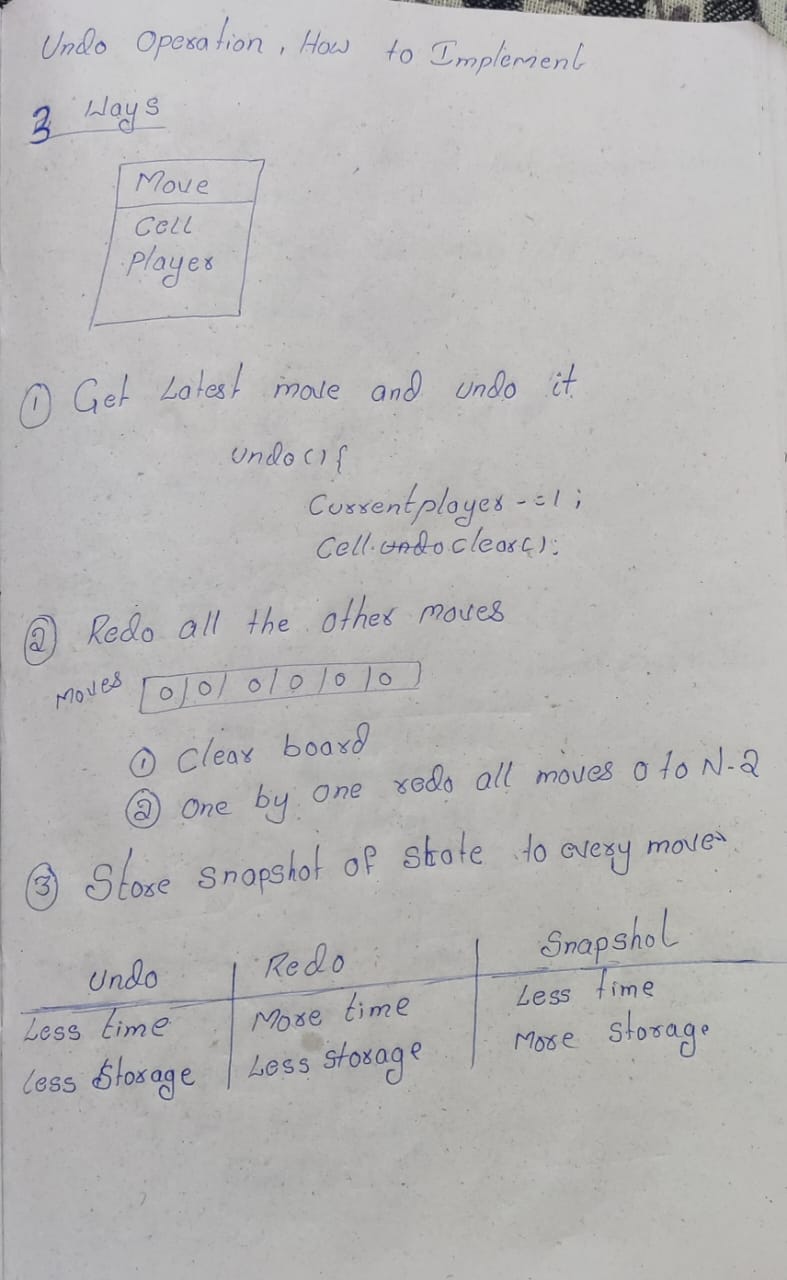 Undo Operation, How to Implement
3 Ways
Move
Cell
Player
① Get Latest move and undo it
undo(){
Currentplayer -=1;
Cell.undo clear();
② Redo all the other moves
Moves 0 0 0 0 0 0
① Clear board
② One by one redo all moves 0 to N-2
③ Store snapshot of state to every move
Undo Redo : Snapshot
Less time More time Less time
less Storage Less Storage More Storage